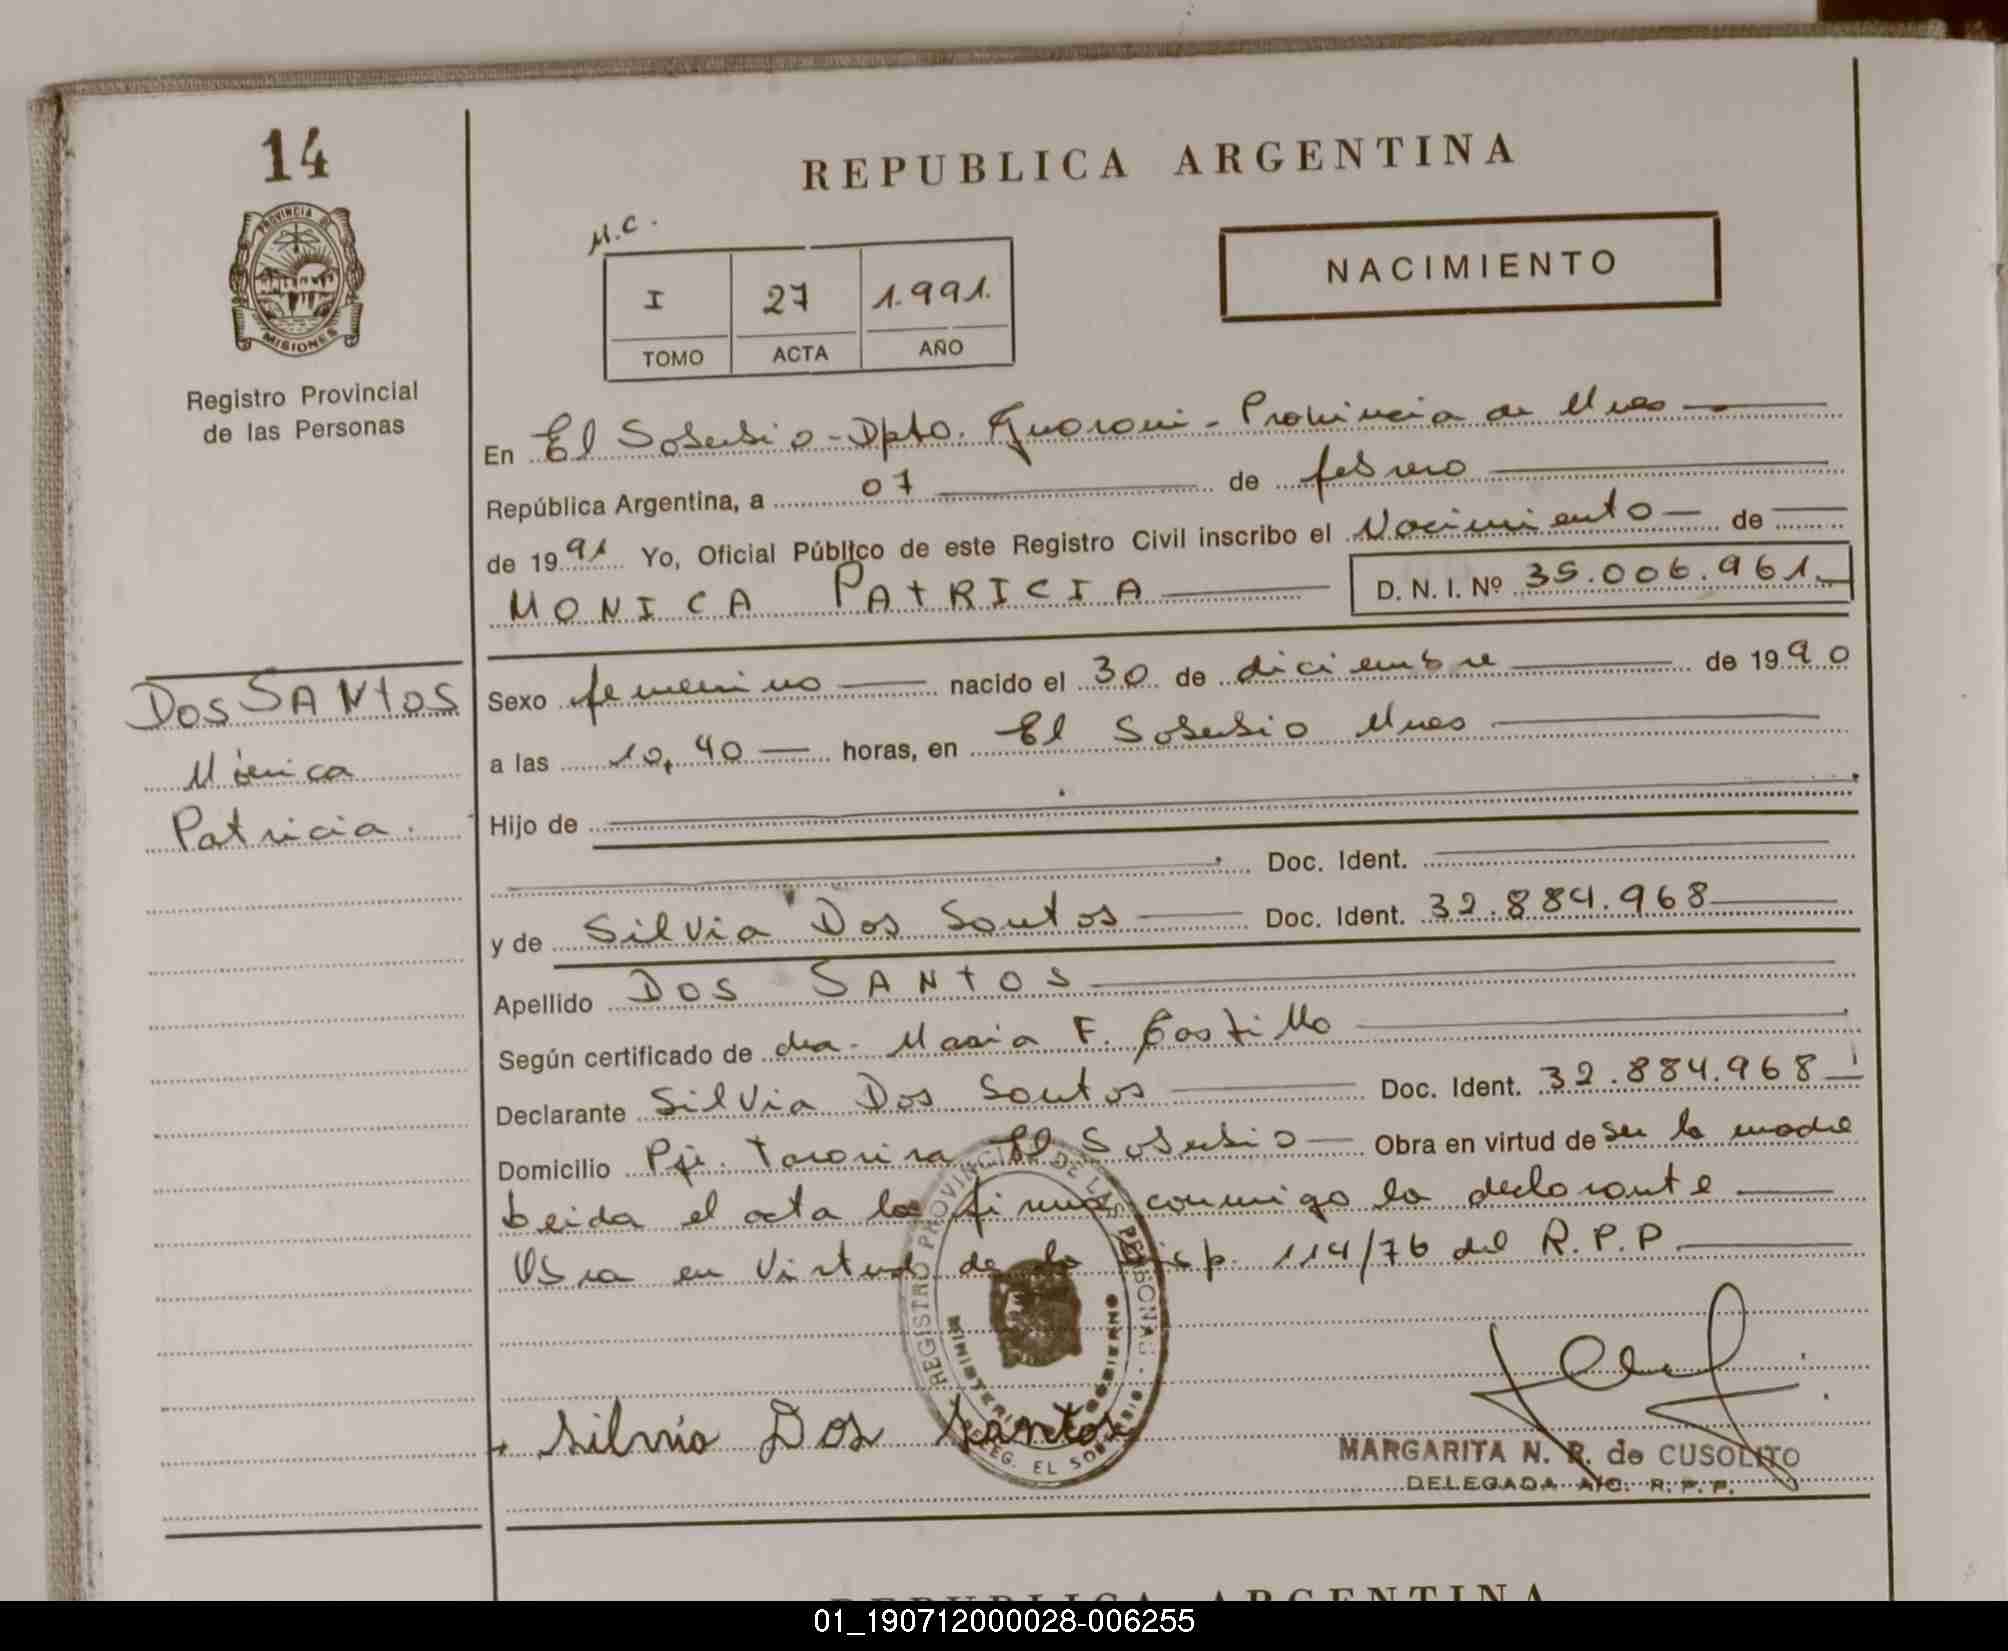 14
REPUBLICA ARGENTINA
PROVINCIA DE
MISIONES
M.C.
NACIMIENTO
I 27 1.991.
TOMO ACTA AÑO
Registro Provincial
de las Personas
En El Soberbio - Dpto. Guarani - Provincia de Mnes
República Argentina, a 07 de febrero
de 1991 Yo, Oficial Público de este Registro Civil inscribo el Nacimiento de
MONICA PATRICIA D. N. I. Nº 35.006.961.
DOS SANTOS
Mónica
Patricia.
Sexo femenino nacido el 30 de diciembre de 1990
a las 10,40 horas, en El Soberbio Mnes
Hijo de
Doc. Ident.
y de Silvia Dos Santos Doc. Ident. 32.884.968
Apellido DOS SANTOS
Según certificado de dra. Maria F. Castillo
Declarante Silvia Dos Santos Doc. Ident. 32.884.968
Domicilio El Soberbio Obra en virtud de ser la madre
Leida el acta la firma conmigo la declarante
en virtud de la Disp. 114/76 del R.P.P
REGISTRO PROVINCIAL DE LAS PERSONAS
MINISTERIO DE GOBIERNO
DELEG. EL SOBERBIO
Silvia Dos Santos
MARGARITA N. R. de CUSOLITO
DELEGADA A/C. R. P. P.
REPUBLICA ARGENTINA
01_190712000028-006255